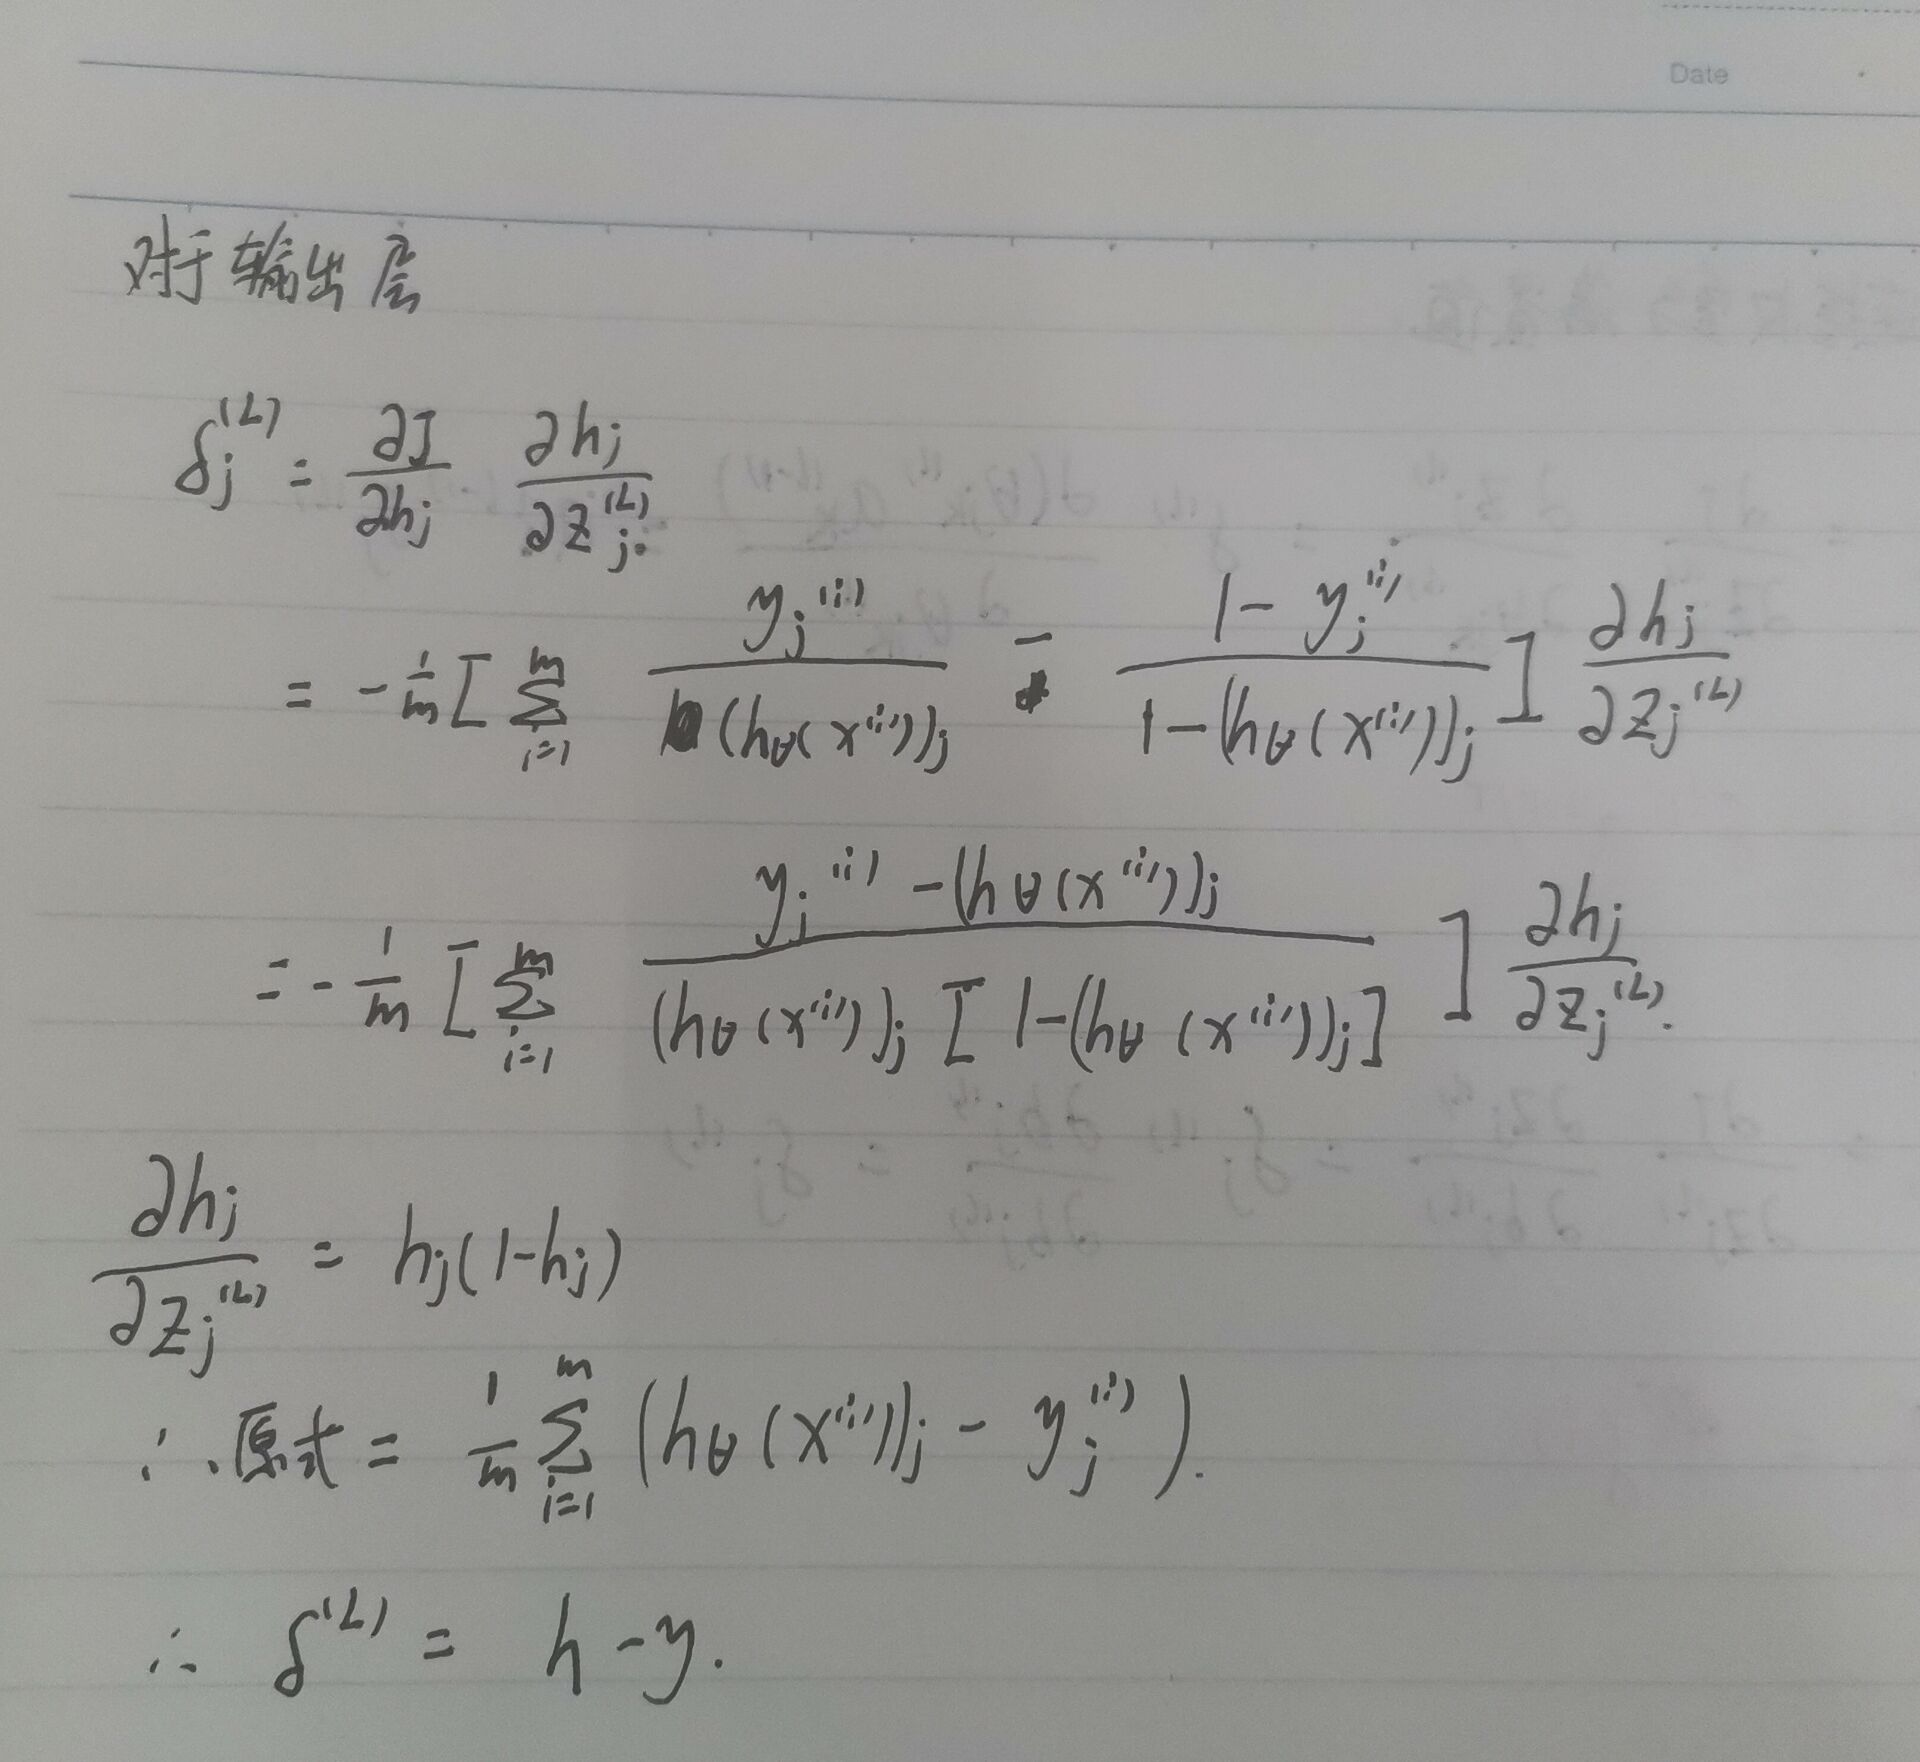 Date
对于输出层
δj^(L) = ∂J/∂hj ∂hj/∂zj^(L)
= -1/m [ Σ_{i=1}^{m} yj^(i)/(hθ(x^(i)))j - (1-yj^(i))/(1-(hθ(x^(i)))j) ] ∂hj/∂zj^(L)
= -1/m [ Σ_{i=1}^{m} (yj^(i) - (hθ(x^(i)))j)/((hθ(x^(i)))j [1-(hθ(x^(i)))j]) ] ∂hj/∂zj^(L).
∂hj/∂zj^(L) = hj(1-hj)
∴原式 = 1/m Σ_{i=1}^{m} (hθ(x^(i))j - yj^(i)).
∴ δ^(L) = h - y.